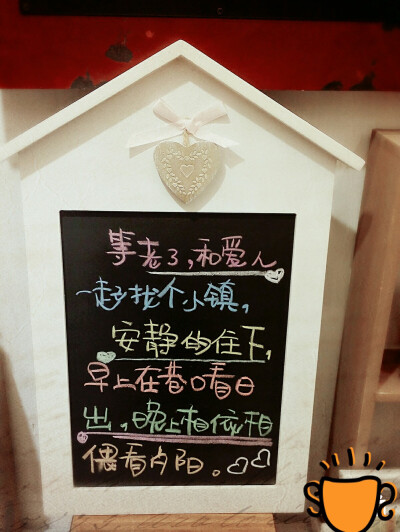 等老了,和爱人
一起找个小镇,
安静的住下,
早上在巷口看日
出,晚上相依相
偎看夕阳。